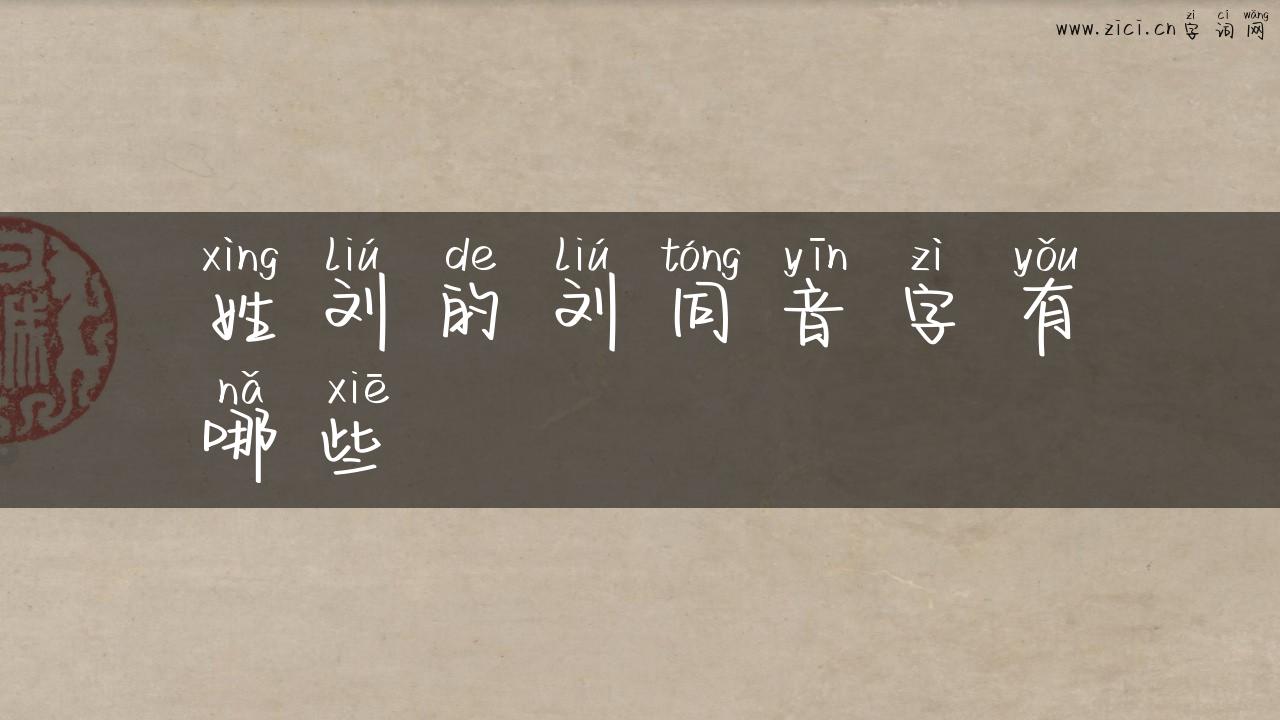 zì cí wǎng
www.zici.cn 字词网
xìng liú de liú tóng yīn zì yǒu
姓刘的刘同音字有
nǎ xiē
哪些